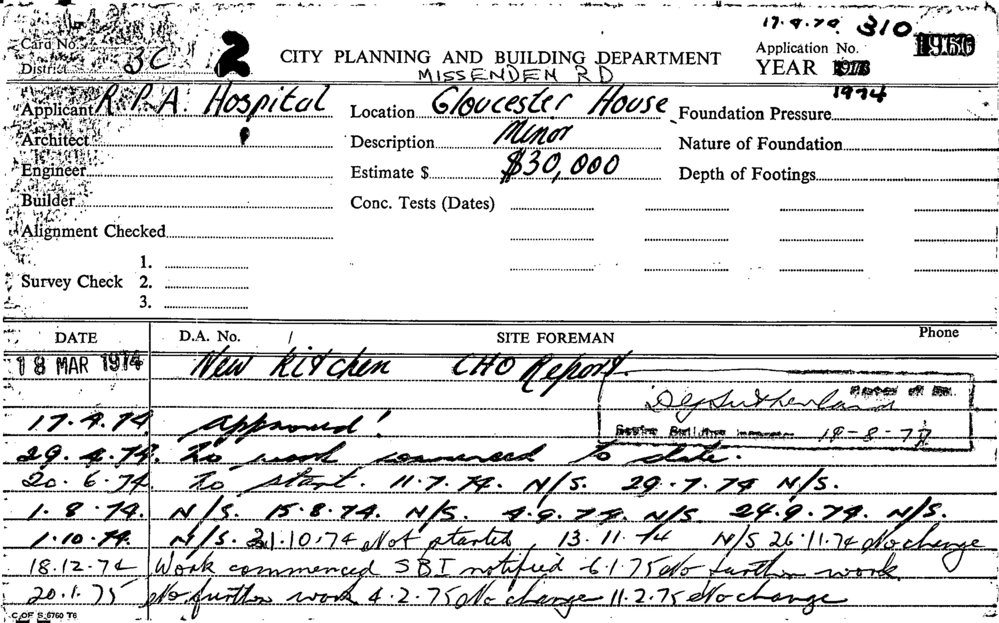 17.4.74. 310
Card No. 2 CITY PLANNING AND BUILDING DEPARTMENT Application No. 1966
District 3C MISSENDEN RD YEAR
1974
Applicant R.P.A. Hospital Location Gloucester House Foundation Pressure
Architect Description Minor Nature of Foundation
Engineer Estimate $ $30,000 Depth of Footings
Builder Conc. Tests (Dates)
Alignment Checked
1.
Survey Check 2.
3.
DATE D.A. No. / SITE FOREMAN Phone
18 MAR 1974 New Kitchen CHO Report.
DG Sutherland
17.4.74 approved!
Senior Building 18-8-77
29.4.74. No work commenced to date.
20.6.74. No start. 11.7.74. N/S. 29.7.74 N/S.
1.8.74. N/S. 15.8.74. N/S. 4.9.74. N/S 24.9.74. N/S.
1.10.74. N/S. 31.10.74 Not started, 13.11.74 N/S 26.11.74 No change
18.12.74 Work commenced SBI notified 6.1.75 No further work.
20.1.75 No further work 4.2.75 No change 11.2.75 No change
C OF S 6760 T6